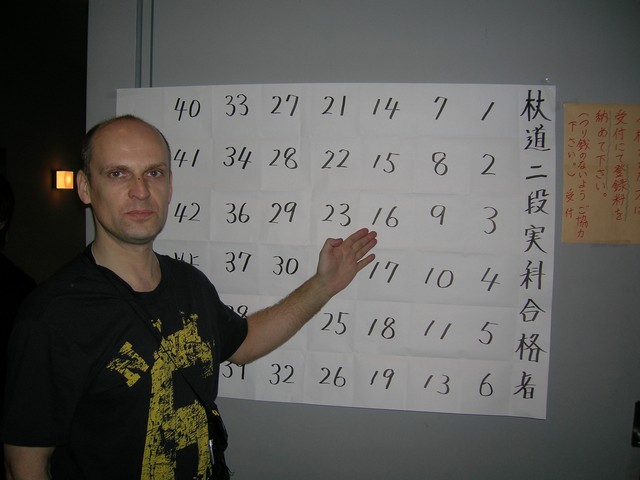 杖道二段実科合格者
1 2 3 4 5 6
7 8 9 10 11 13
14 15 16 17 18 19
21 22 23 25 26
27 28 29 30 32
33 34 36 37 39
40 41 42
受付にて登録料を
納めて下さい。
(つり銭のないようご協力
下さい。) 受付